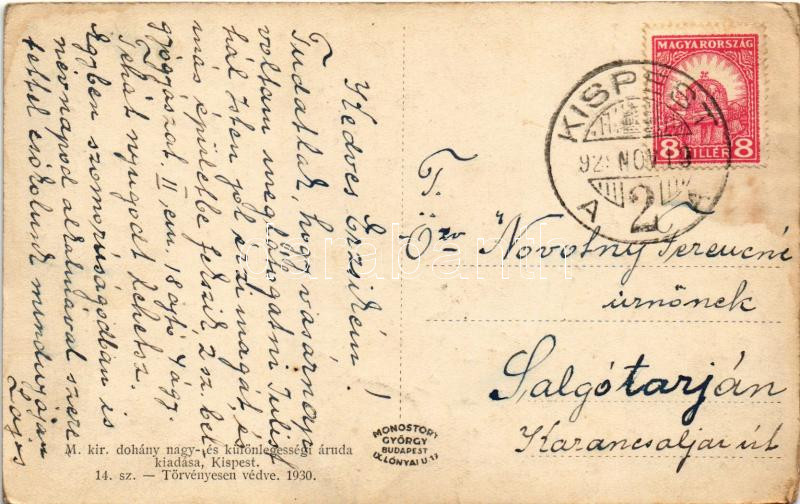 Kedves Erzsikém!
Tudatlak, hogy vasárnap
voltam meglátogatni Julist
hál Isten jól érzi magát, és
más épületbe fekszik 2 sz. bel
gyógyászat II, em. 18 ajtó 4 ágy.
Tehát nyugodt lehetsz.
Egyben szomorúságodban is
névnapod alkalmával szere
tettel csókolunk mindnyájan
Lajos
M. kir. dohány nagy- és különlegességi áruda
kiadása, Kispest.
14. sz. — Törvényesen védve. 1930.
MONOSTORY
GYÖRGY
BUDAPEST
IX. LÓNYAI U. 17
MAGYARORSZÁG
8 FILLÉR 8
KISPEST
NOV. 19
A 2
T.
Özv Novotny Ferencné
úrnőnek
Salgótarján
Karancsaljai út